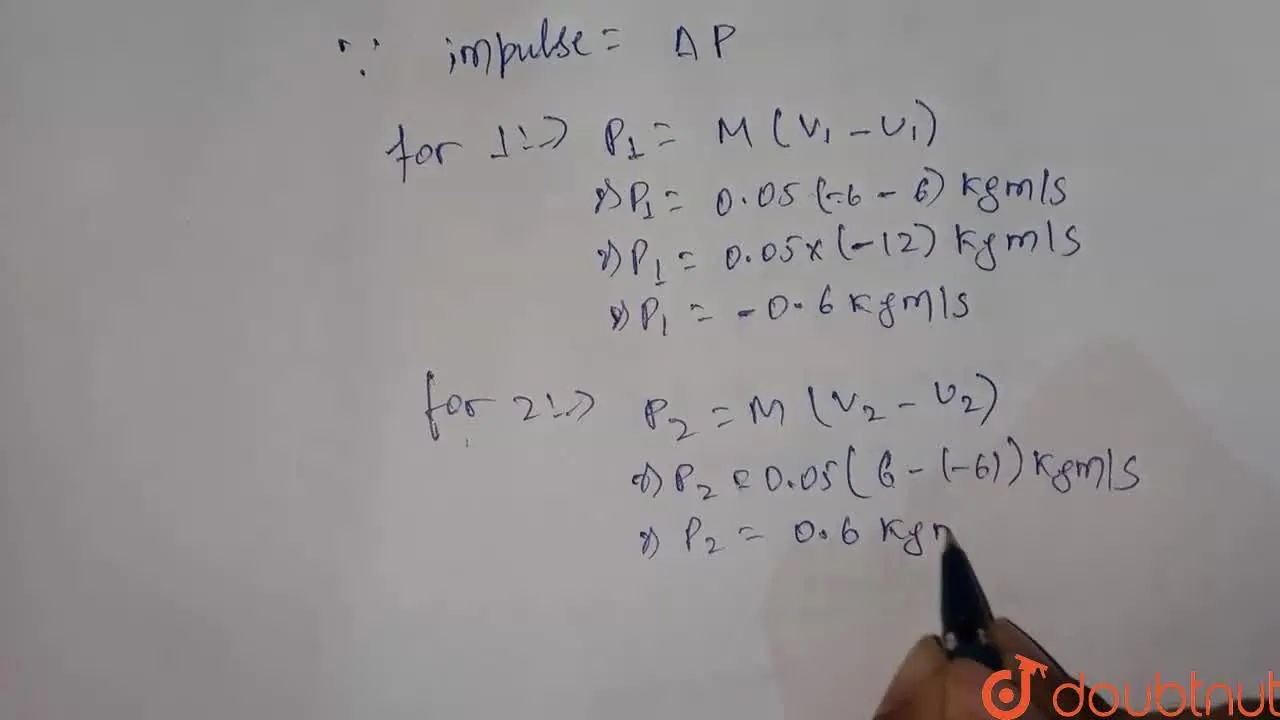 ∵ impulse = ΔP
for 1:→ P₁ = M (V₁ - U₁)
⇒ P₁ = 0.05 (-6 - 6) kgm/s
⇒ P₁ = 0.05 x (-12) kgm/s
⇒ P₁ = -0.6 kgm/s
for 2:→ P₂ = M (V₂ - U₂)
⇒ P₂ = 0.05 (6 - (-6)) kgm/s
⇒ P₂ = 0.6 kgm
doubtnut